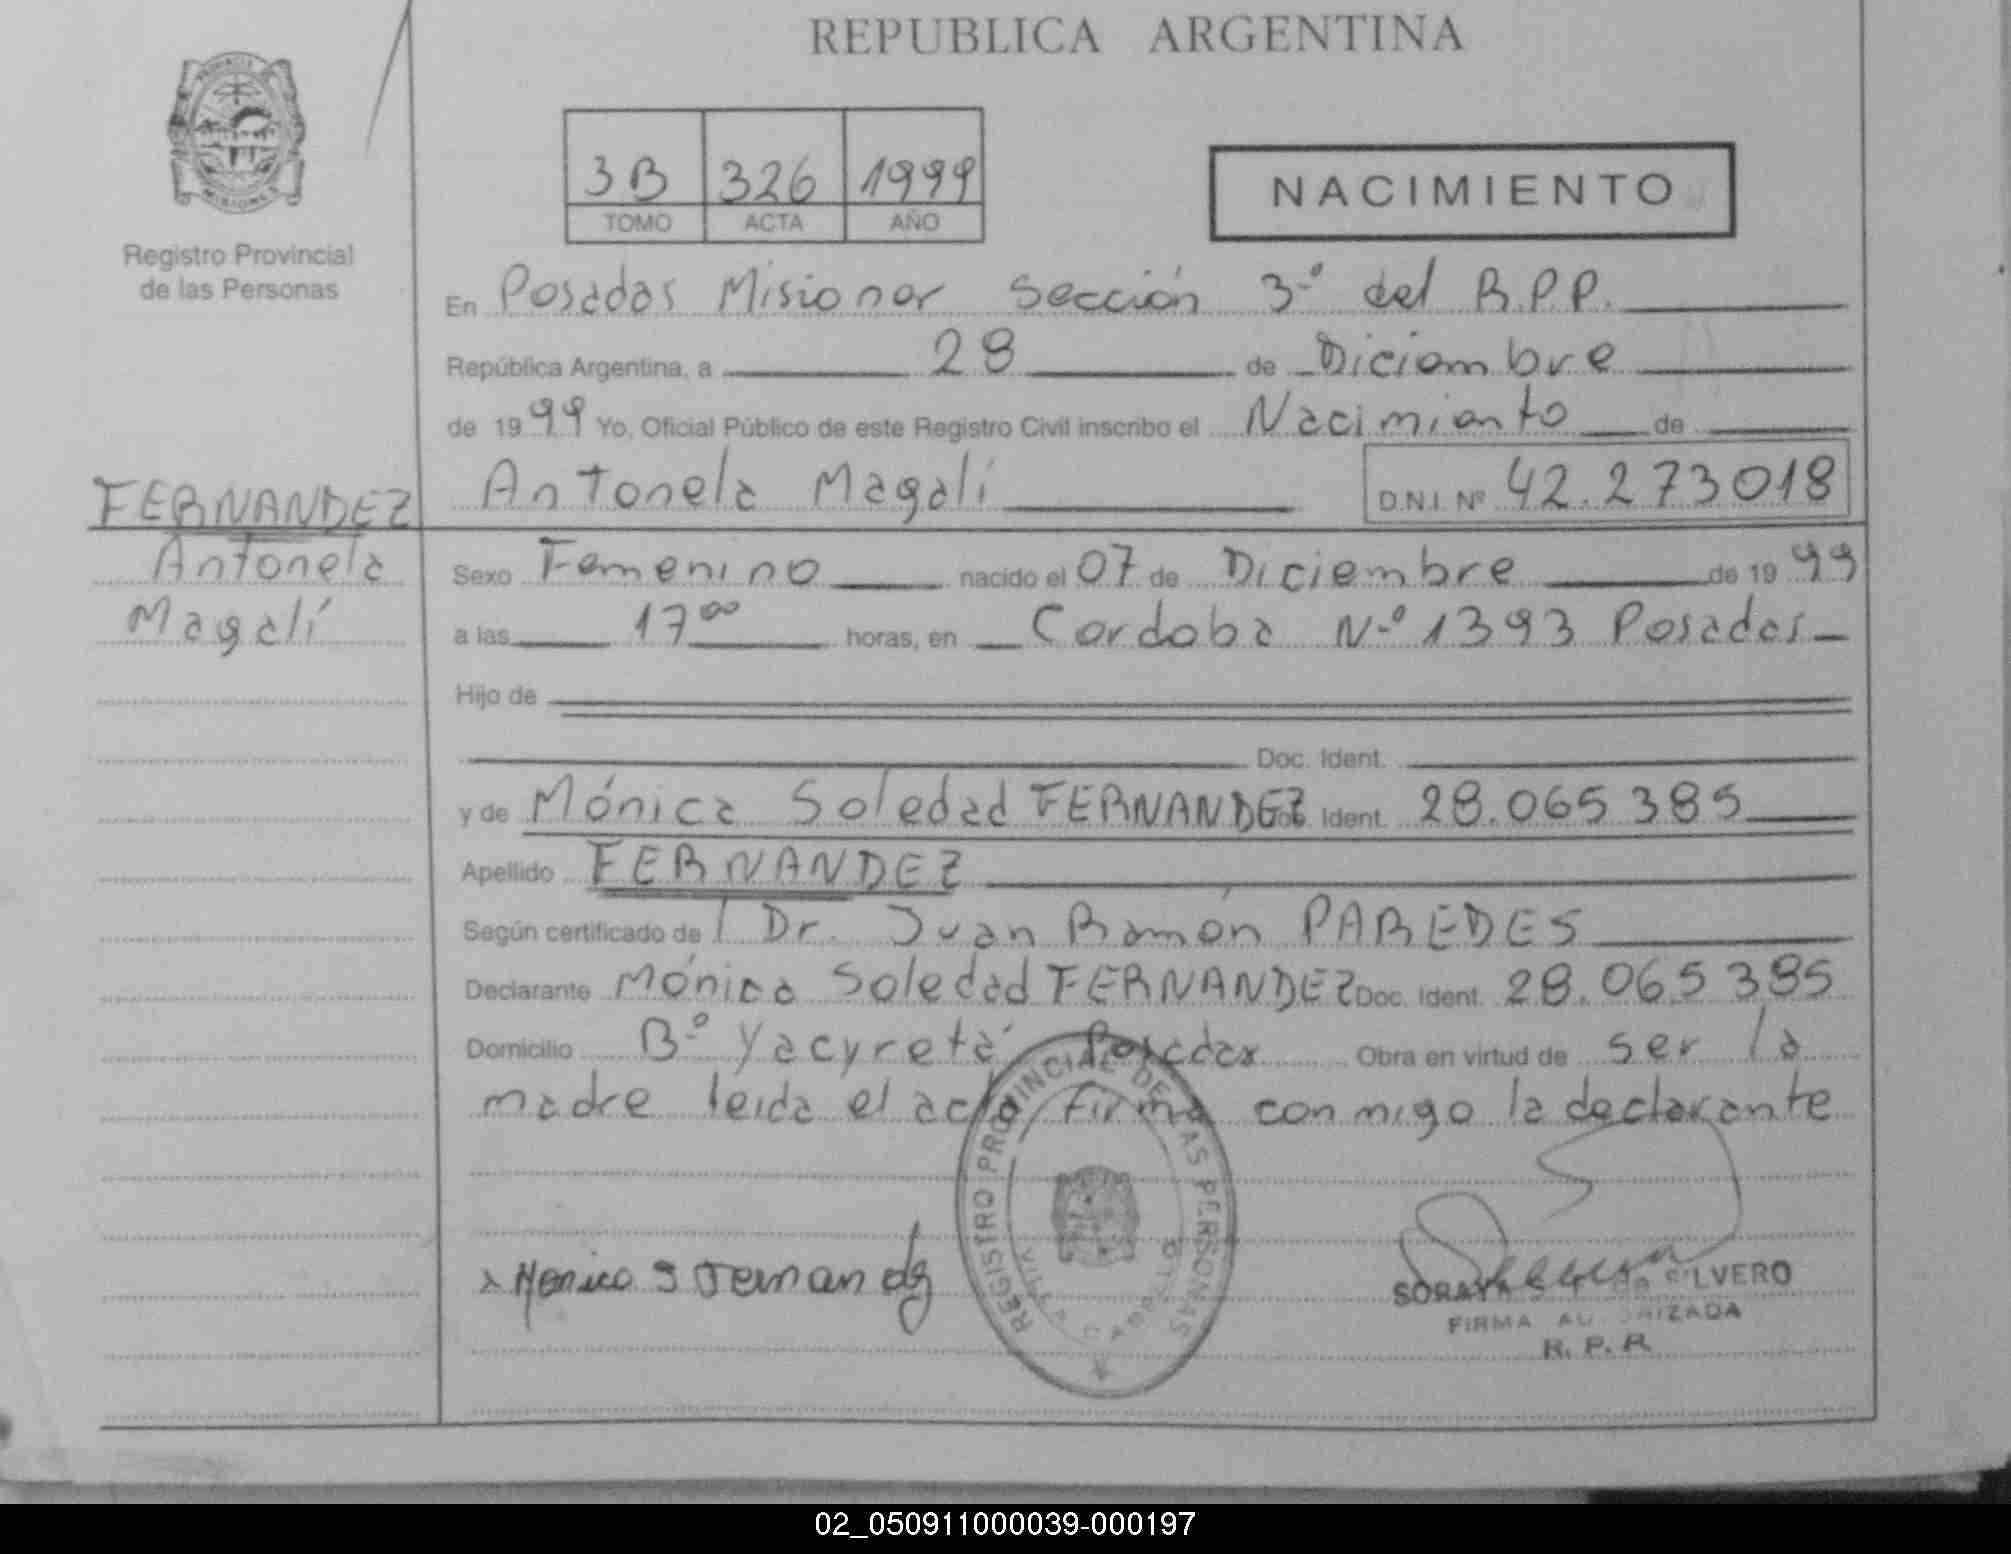 REPUBLICA ARGENTINA
3B 326 1999
TOMO ACTA AÑO
NACIMIENTO
Registro Provincial
de las Personas
En Posadas Misiones Sección 3º del R.P.P.
República Argentina, a 28 de Diciembre
de 1999 Yo, Oficial Público de este Registro Civil inscribo el Nacimiento de
Antonela Magalí D.N.I. Nº 42.273018
FERNANDEZ
Antonela
Magalí
Sexo Femenino nacido el 07 de Diciembre de 1999
a las 17⁰⁰ horas, en Cordoba Nº 1393 Posadas
Hijo de
Doc. Ident.
y de Mónica Soledad FERNANDEZ Doc. Ident. 28.065385
Apellido FERNANDEZ
Según certificado de Dr. Juan Ramón PAREDES
Declarante Mónica Soledad FERNANDEZ Doc. Ident. 28.065385
Domicilio Bº Yacyretá Posadas Obra en virtud de ser la
madre leida el acta firma conmigo la declarante
REGISTRO PROVINCIAL DE LAS PERSONAS
Monica S Fernandez
SORAYA de SILVERO
FIRMA AUTORIZADA
R. P. P.
02_050911000039-000197